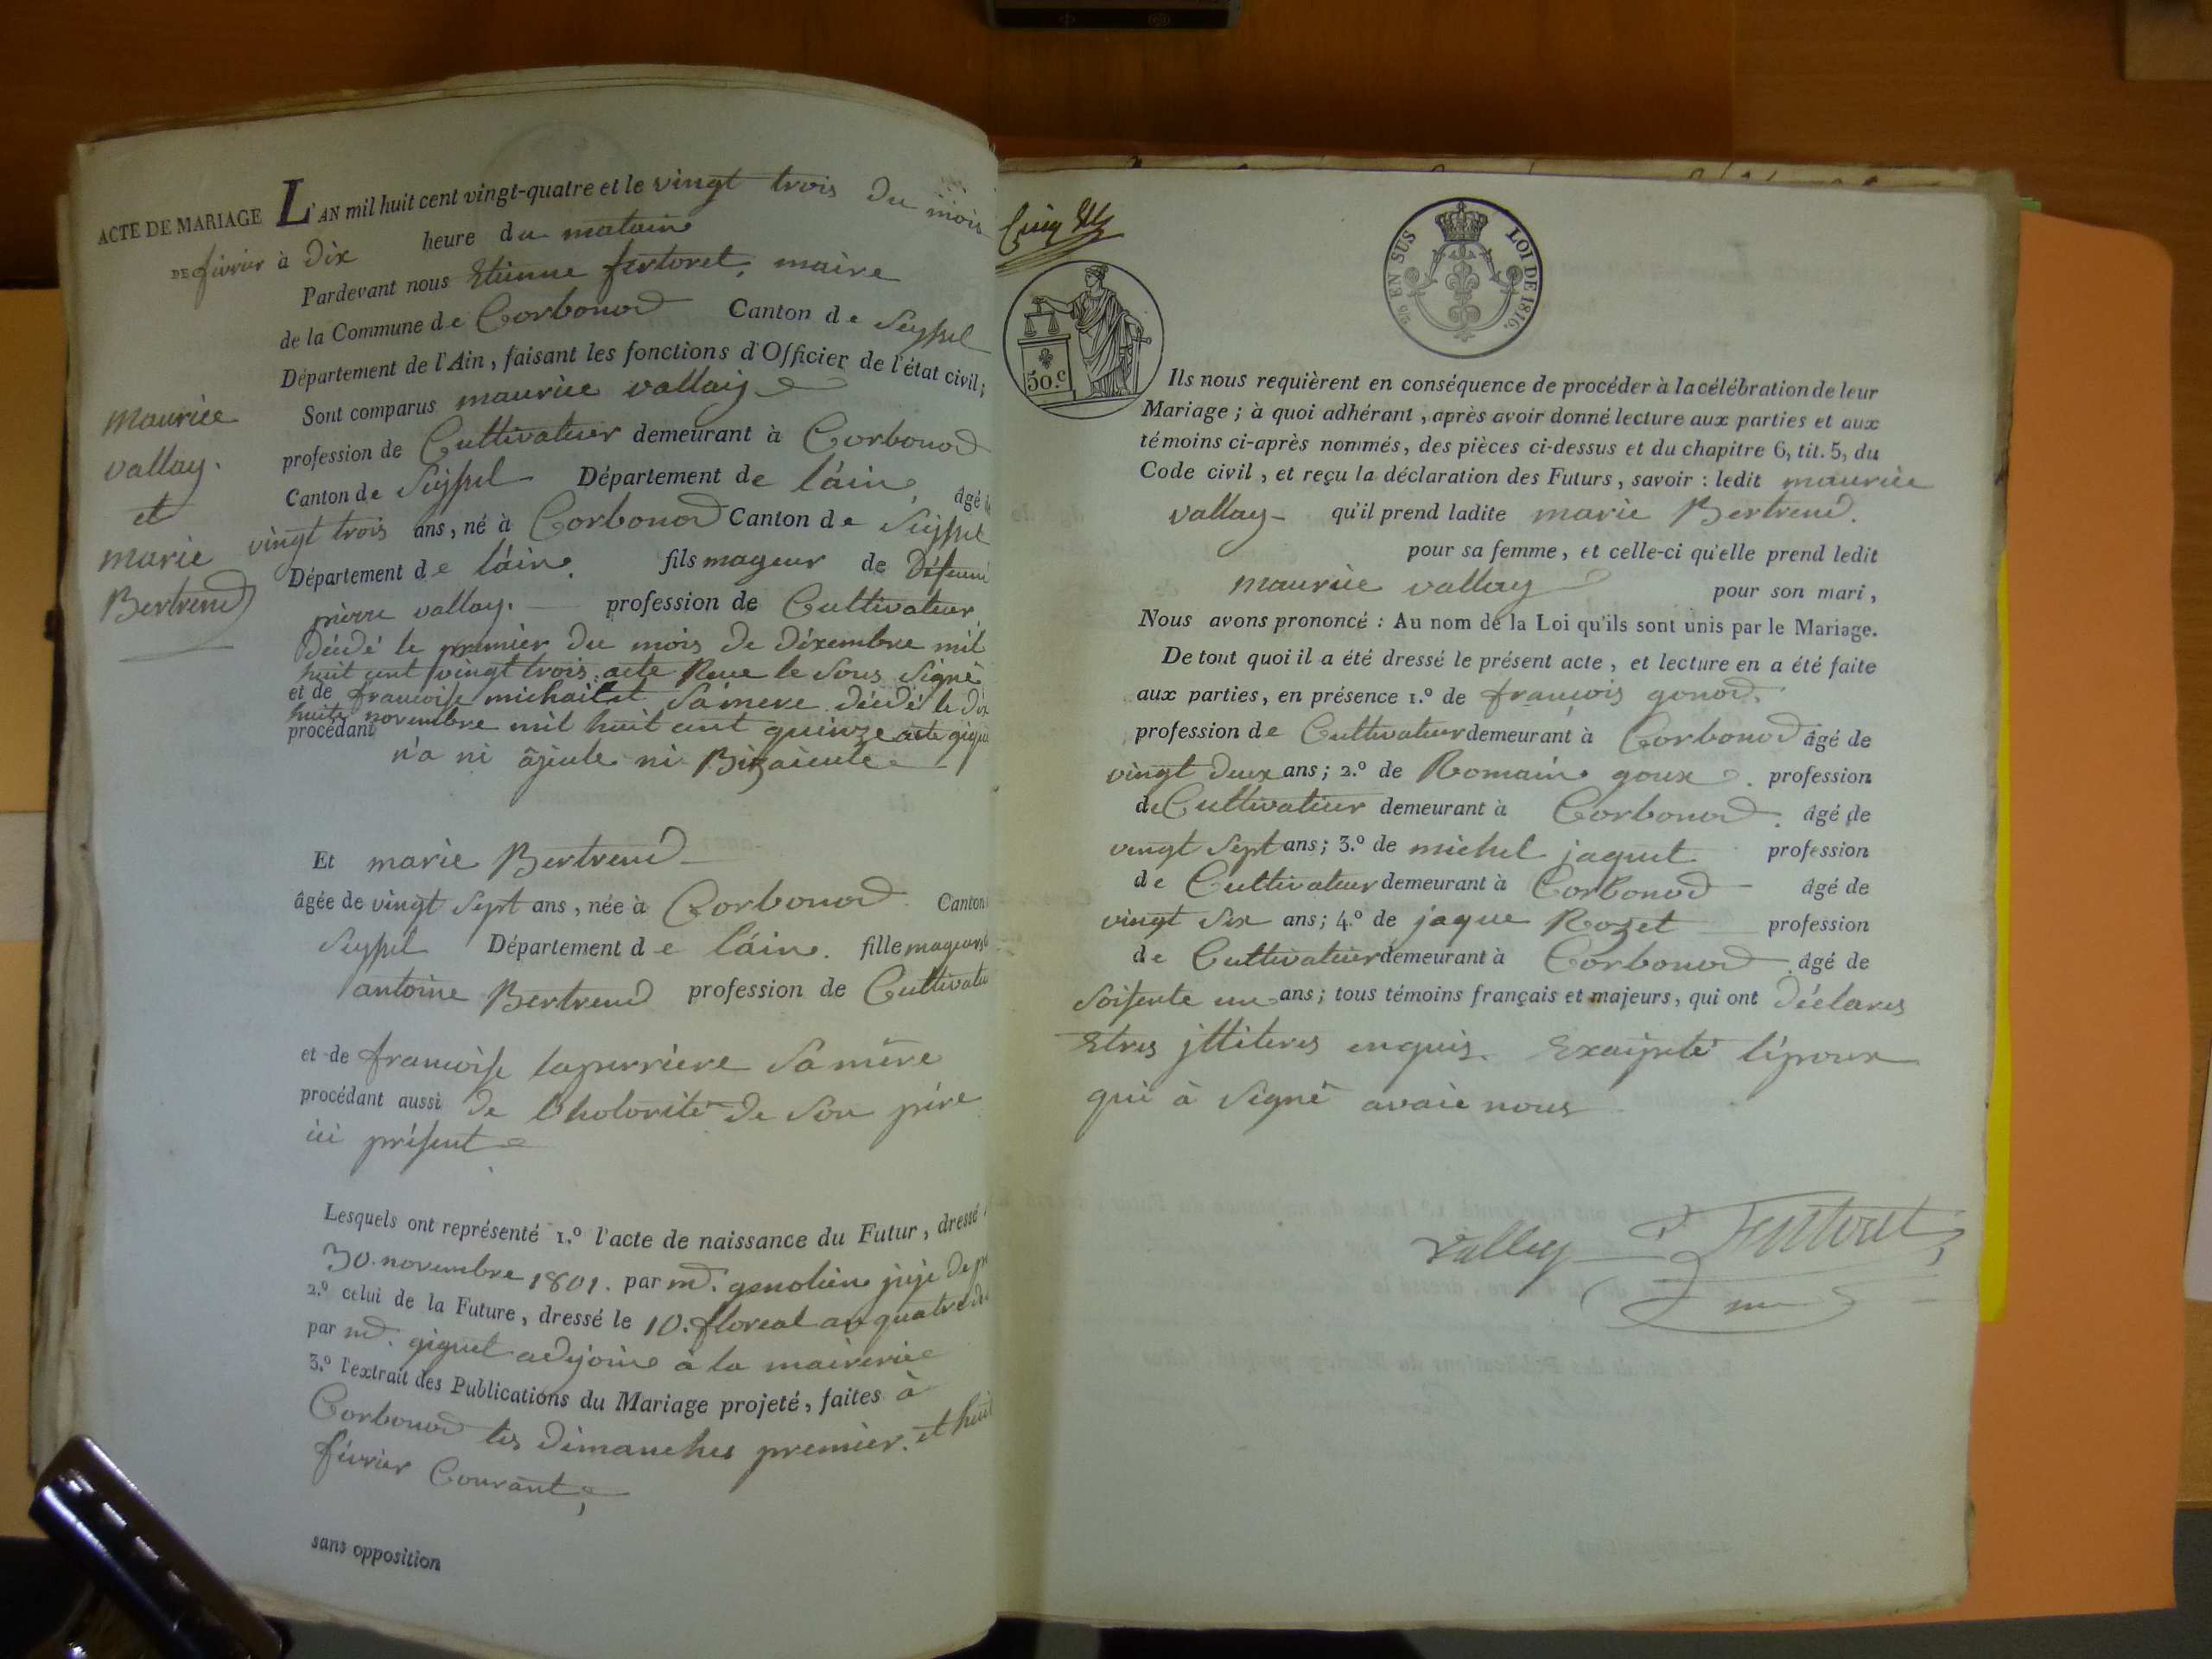 ACTE DE MARIAGE L'AN mil huit cent vingt-quatre et le vingt trois du mois
DE fivrier à dix heure du matain
Pardevant nous Etienne fertoret, maire
de la Commune de Corbonod Canton de Seyssel
Département de l'Ain, faisant les fonctions d'Officier de l'état civil;
Sont comparus maurice vallay
profession de Cultivateur demeurant à Corbonod
Canton de Seyssel Département de láin, âgé
vingt trois ans, né à Corbonod Canton de Seyssel
Département de láin. fils mageur de
pierre vallay. profession de Cultivateur
décédé le premier du mois de déxembre mil
huit cent vingt trois acte le sous signé
et de francoise michailet sa mere décédé le dix
huite novembre mil huit cent quinze acte
procédant
n'a ni âjeule ni Bizaieule
maurice
vallay.
et
marie
Bertrend
Et marie Bertrend
âgée de vingt sept ans, née à Corbonod. Canton
Seyssel Département de láin. fille mageure
antoine Bertrend profession de Cultivateu
et de francoise laperriere Sa mère
procédant aussi de l'hotorité de son père
ici présent
Lesquels ont représenté 1.º l'acte de naissance du Futur, dressé
30. novembre 1801. par md. genolin juje de
2.º celui de la Future, dressé le 10. floreal an quatre
par md. giguet adjoine à la maireriee
3.º l'extrait des Publications du Mariage projeté, faites à
Corbonod les dimanches premier. et huit
fivrier Courant,
sans opposition
Cinq
EN SUS LOI DE 1816.
50.c
Ils nous requièrent en conséquence de procéder à la célébration de leur
Mariage; à quoi adhérant, après avoir donné lecture aux parties et aux
témoins ci-après nommés, des pièces ci-dessus et du chapitre 6, tit. 5, du
Code civil, et reçu la déclaration des Futurs, savoir: ledit maurice
vallay qu'il prend ladite marie Bertrend.
pour sa femme, et celle-ci qu'elle prend ledit
maurice vallay pour son mari,
Nous avons prononcé: Au nom de la Loi qu'ils sont unis par le Mariage.
De tout quoi il a été dressé le présent acte, et lecture en a été faite
aux parties, en présence 1.º de francois gonod.
profession de Cultivateur demeurant à Corbonod âgé de
vingt deux ans; 2.º de Romain goux. profession
de Cultivateur demeurant à Corbonod. âgé de
vingt sept ans; 3.º de michel jaquet. profession
de Cultivateur demeurant à Corbonod âgé de
vingt six ans; 4.º de jaque Rozet profession
de Cultivateur demeurant à Corbonod âgé de
soisente un ans; tous témoins français et majeurs, qui ont déclares
Etres jlliteres enquis. Exaipté lépoux
qui à signé avaic nous
Vallay Fertoret